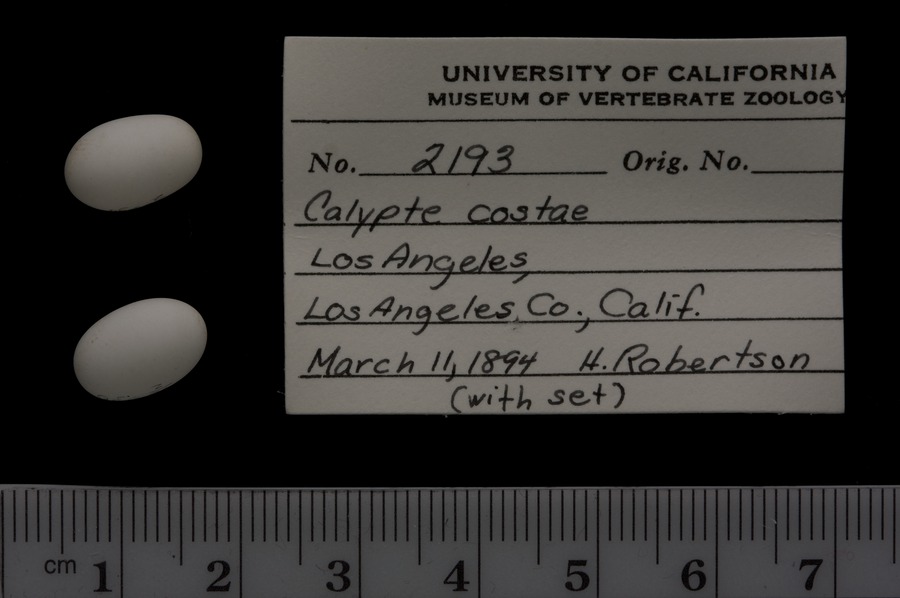 UNIVERSITY OF CALIFORNIA
MUSEUM OF VERTEBRATE ZOOLOGY
No. 2193 Orig. No.
Calypte costae
Los Angeles,
Los Angeles, Co., Calif.
March 11, 1894 H. Robertson
(with set)
cm 1 2 3 4 5 6 7